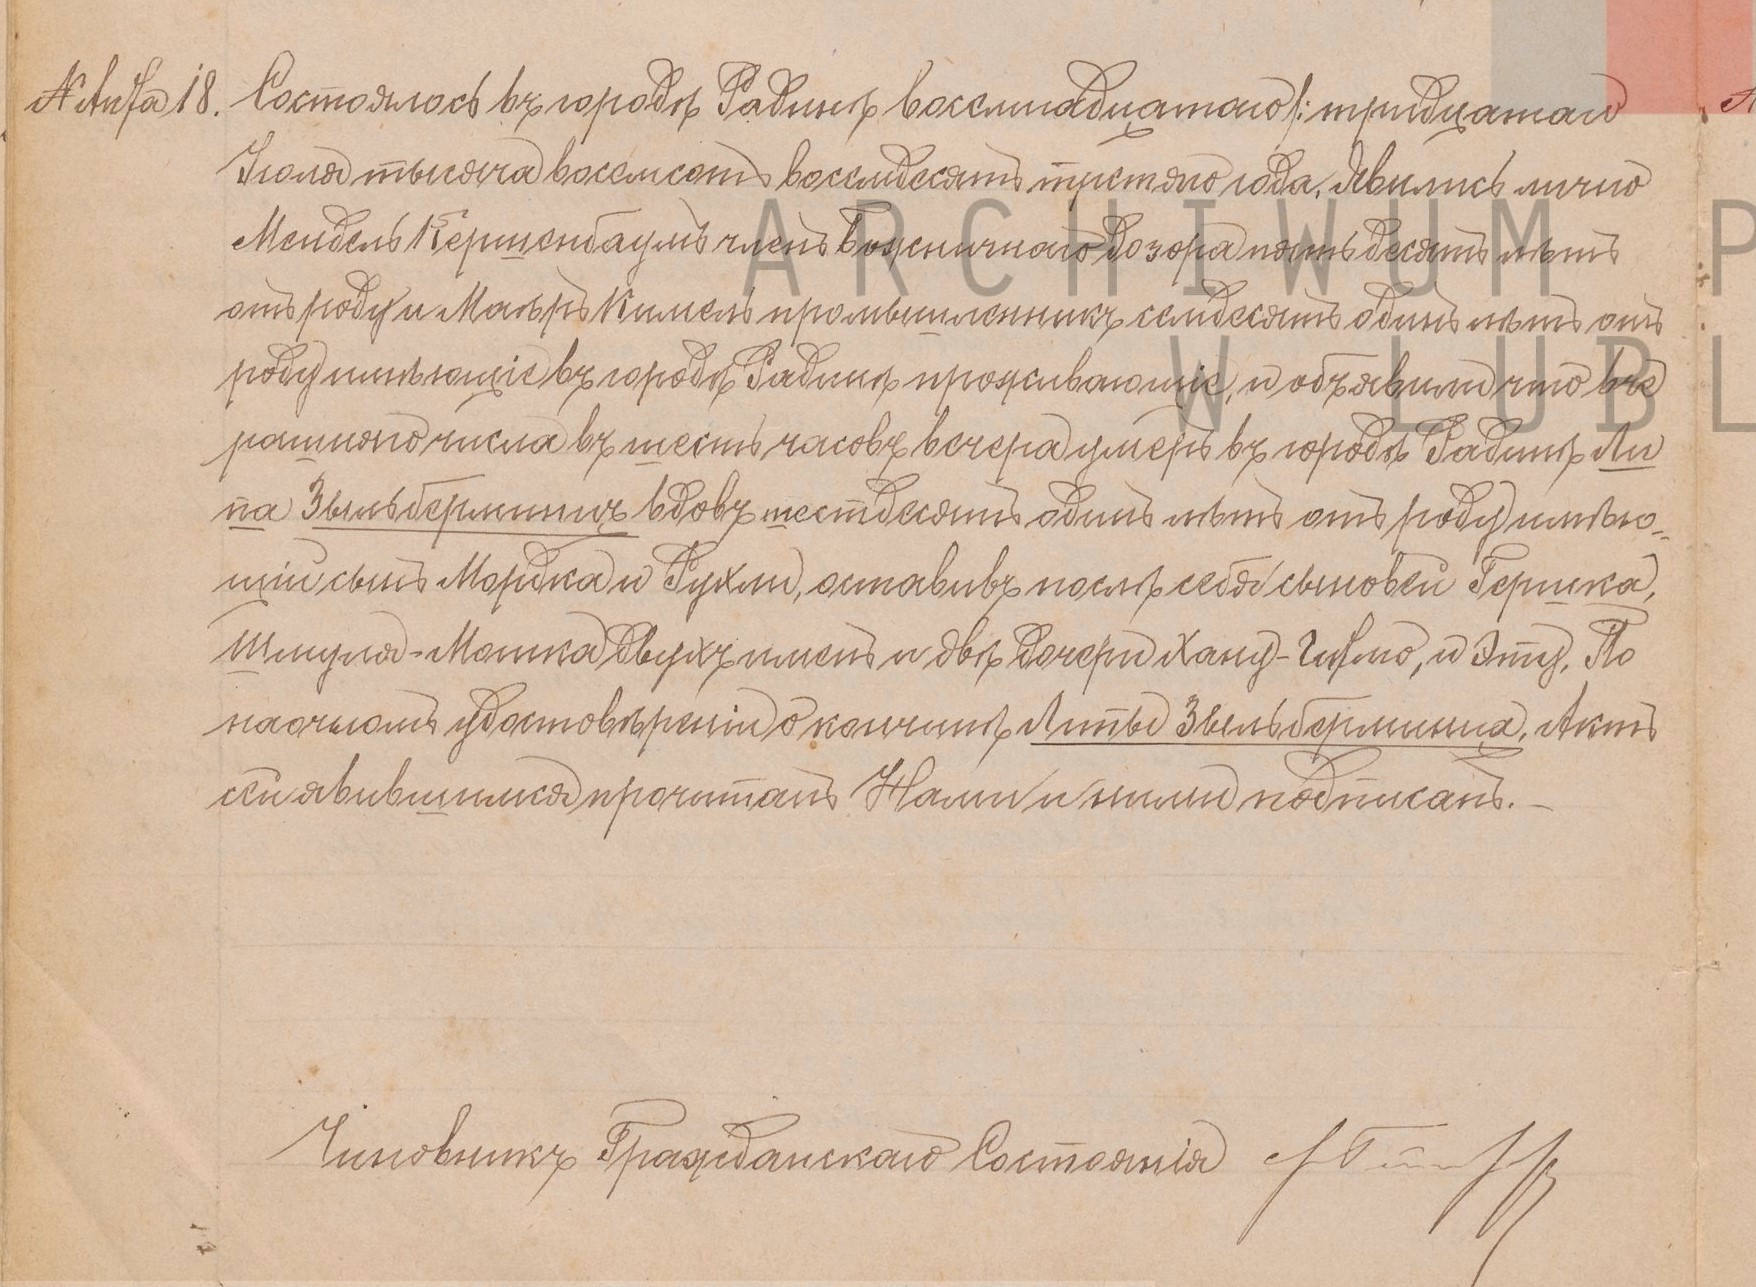 № Акта 18. Состоялось въ городѣ Радинѣ восемнадцатаго /: тридцатаго
Іюля тысяча восемсотъ восемдесятъ третяго года. Явились лично
Мендель Кершенбаумъ членъ Божничнаго Дозора пятьдесятъ лѣтъ
отъ роду и Маеръ Кимель промышленникъ семдесятъ одинъ лѣтъ отъ
роду имѣющіе въ городѣ Радинѣ проживающіе, и объявили что вче
рашняго числа въ шесть часовъ вечера умеръ въ городѣ Радинѣ Ли
па Зыльберминцъ вдовъ шестдесятъ одинъ лѣтъ отъ роду имѣю-
щій сынъ Мордка и Рухли, оставивъ послѣ себя сыновей Гершка,
Шмуля-Мошка двухъ именъ и двѣ дочери Хану-Гитлю, и Эту. По
наочномъ удостовѣреніи о кончинѣ Липы Зыльберминца, Актъ
сей явившимся прочитанъ Нами и ними подписанъ. –
Чиновникъ Гражданскаго Состоянія
ARCHIWUM P
W LUBL